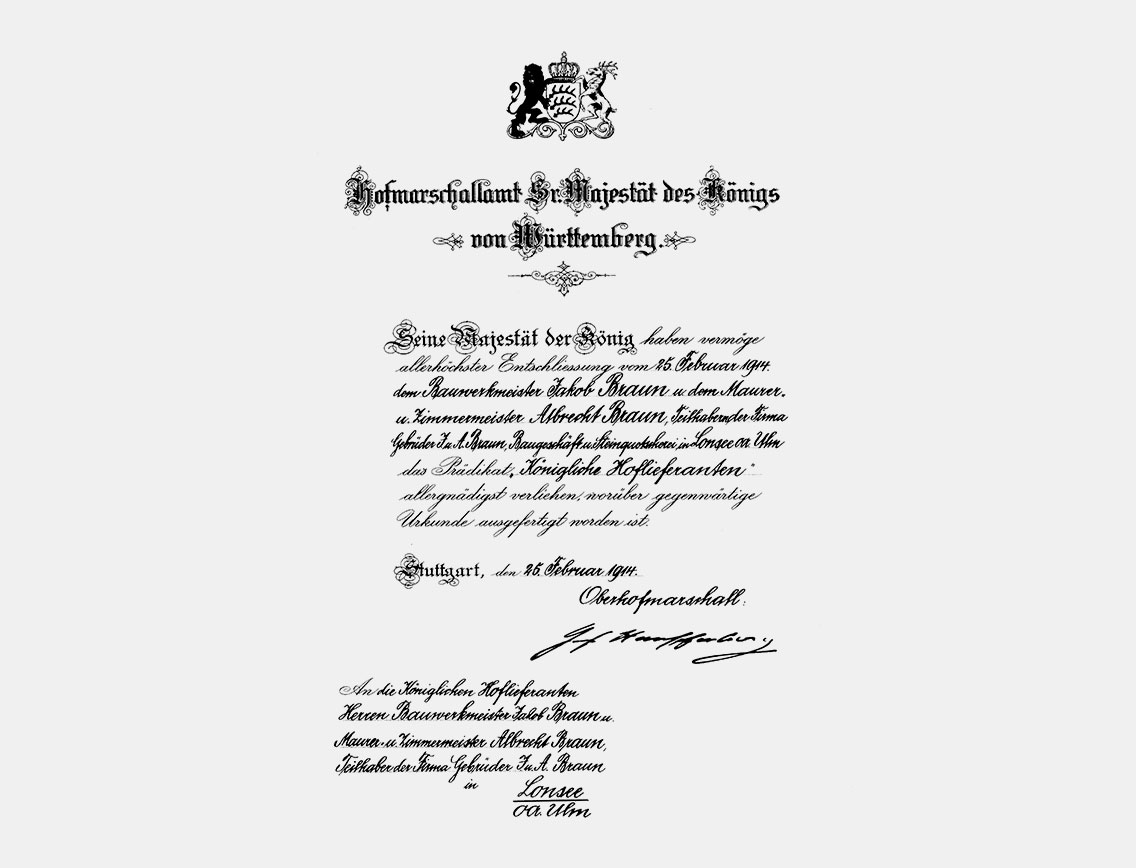 Hofmarschallamt Sr. Majestät des Königs
von Württemberg.
Seine Majestät der König haben vermöge
allerhöchster Entschliessung vom 25. Februar 1914.
dem Bauwerkmeister Jakob Braun u dem Maurer-
u. Zimmermeister Albrecht Braun, Teilhabern der Firma
Gebrüder J. u. A. Braun, Baugeschäft u. in Lonsee OA. Ulm
das Prädikat „Königliche Hoflieferanten"
allergnädigst verliehen, worüber gegenwärtige
Urkunde ausgefertigt worden ist.
Stuttgart, den 25. Februar 1914.
Oberhofmarschall:
An die Königlichen Hoflieferanten
Herren Bauwerkmeister Jakob Braun u.
Maurer- u. Zimmermeister Albrecht Braun,
Teilhaber der Firma Gebrüder J. u. A. Braun
in
Lonsee
OA. Ulm